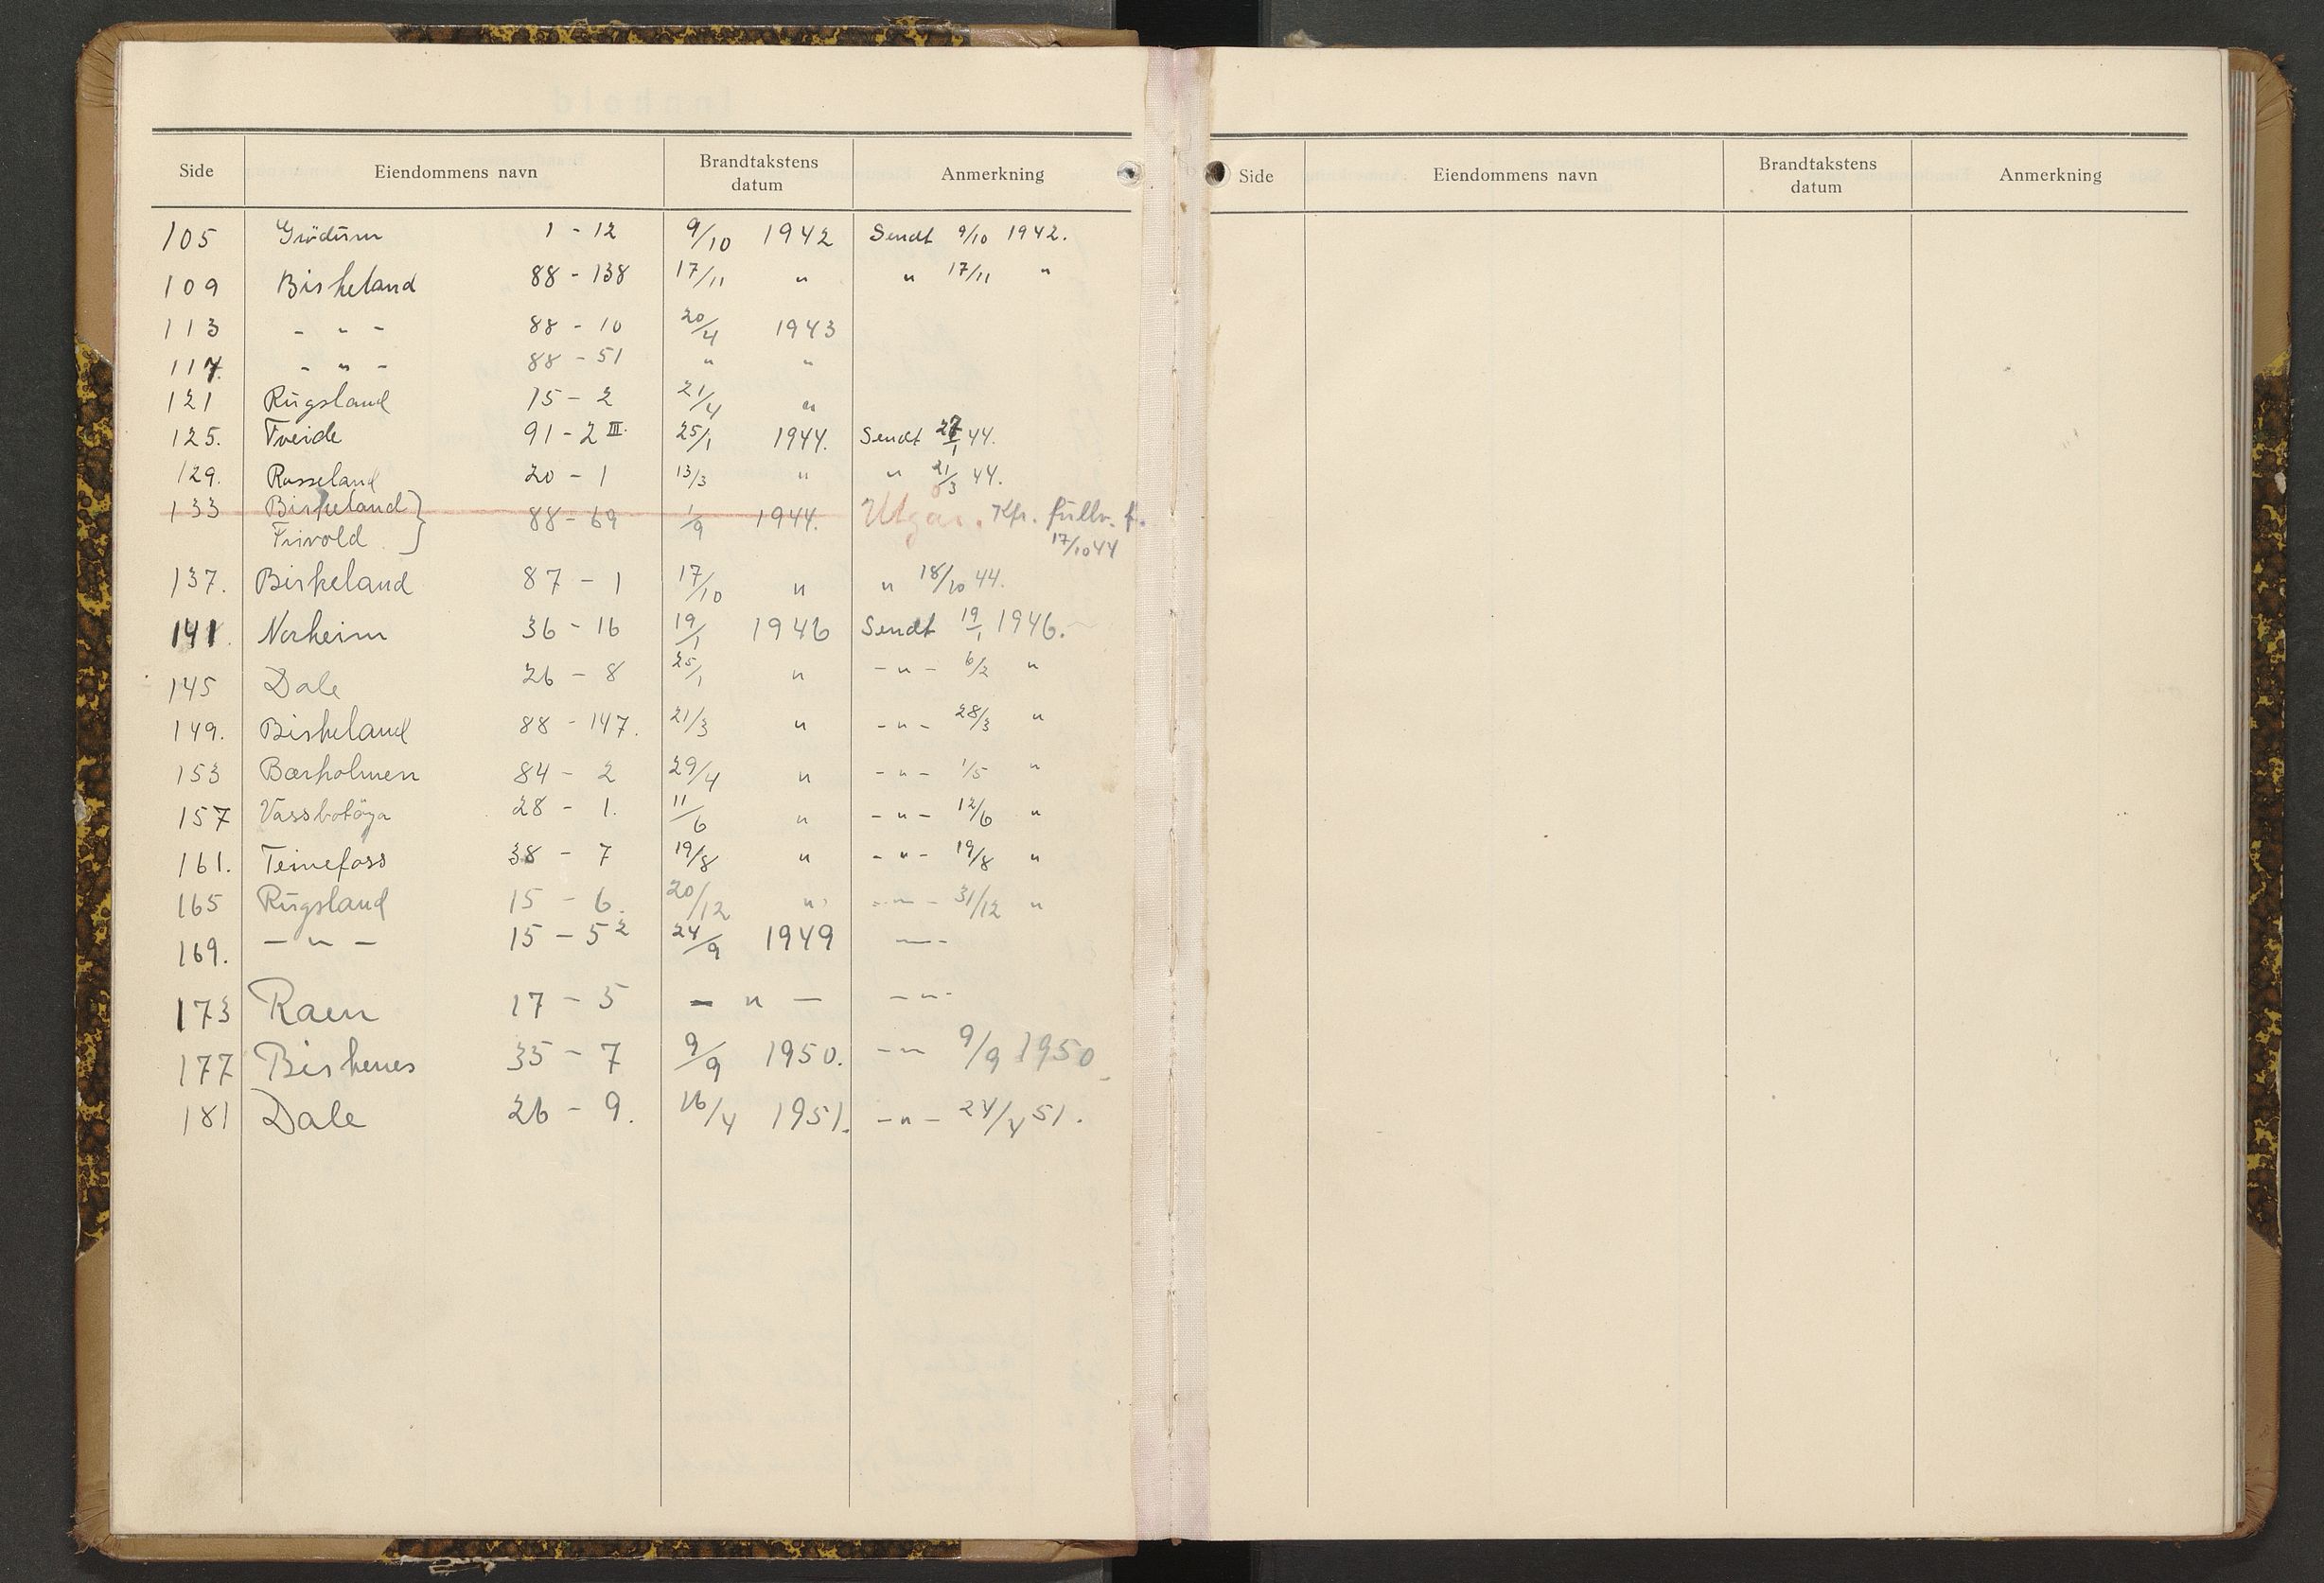 Side Eiendommens navn Brandtakstens datum Anmerkning
105 Grödum 1 - 12 9/10 1942 Sendt 9/10 1942.
109 Birkeland 88 - 138 17/11 " " 17/11 "
113 - " - 88 - 10 20/4 1943
117. - " - 88 - 51 " "
121 Rugsland 15 - 2 21/4 "
125. Tveide 91 - 2 III. 25/1 1944. Sendt 27/1 44.
129. Rosseland 20 - 1 13/3 " " 21/3 44.
133 Birkeland } 88 - 69 1/9 1944. Utgår. Kfr. fullv. f.
Frivold 17/10 44
137. Birkeland 87 - 1 17/10 " " 18/10 44.
141. Norheim 36 - 16 19/1 1946 Sendt 19/1 1946.
145 Dale 26 - 8 25/1 " - " - 6/2 "
149. Birkeland 88 - 147. 21/3 " - " - 28/3 "
153 Bærholmen 84 - 2 29/4 " - " - 1/5 "
157 Vassbotöya 28 - 1. 11/6 " - " - 12/6 "
161. Teinefoss 38 - 7 19/8 " - " - 19/8 "
165 Rugsland 15 - 6. 20/12 " - " - 31/12 "
169. - " - 15 - 5 2 24/9 1949 - " -
173 Raen 17 - 5 - " - - " -
177 Birkenes 35 - 7 9/9 1950. - " 9/9 1950
181 Dale 26 - 9. 16/4 1951. - " - 24/4 51.
Side Eiendommens navn Brandtakstens datum Anmerkning